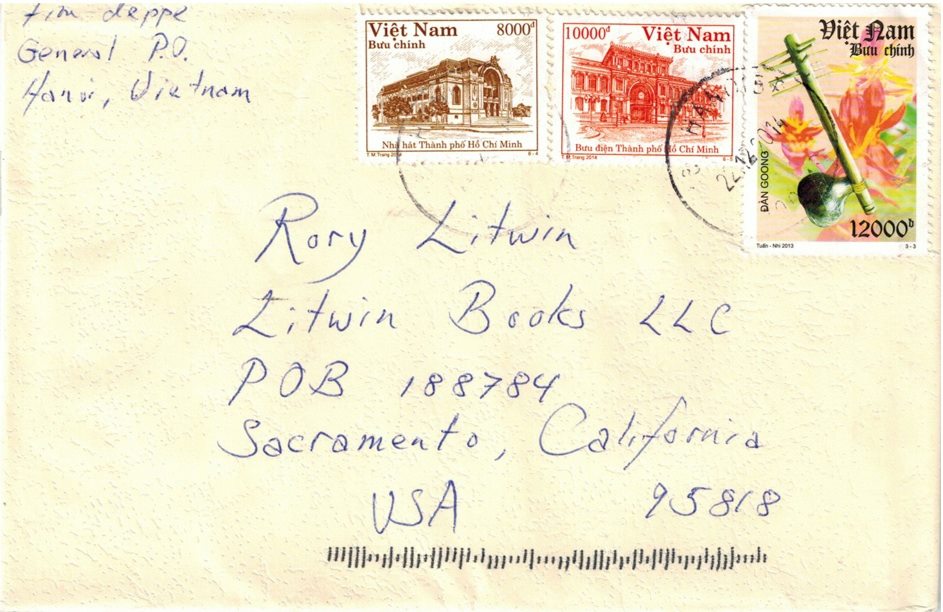 tim deppe
General P.O.
Hanoi, Vietnam
Việt Nam 8000đ
Bưu chính
Nhà hát Thành phố Hồ Chí Minh
T. M. Trang 2014 6 - 4
10000đ Việt Nam
Bưu chính
Bưu điện Thành phố Hồ Chí Minh
T. M. Trang 2014
Việt Nam
Bưu chính
ĐÀN GOONG
12000đ
Tuấn - Nhi 2013 3 - 3
22.12.2014
Rory Litwin
Litwin Books LLC
POB 188784
Sacramento, California
USA 95818